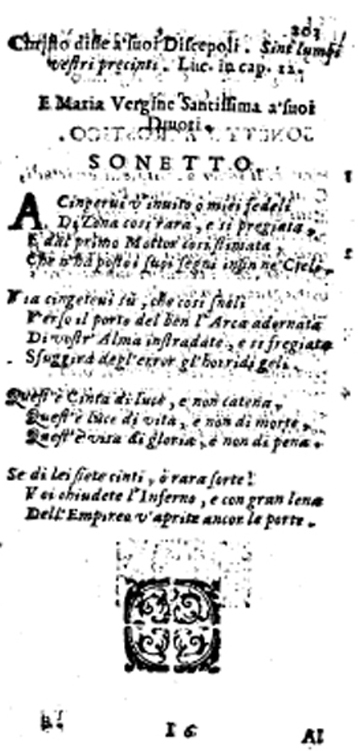 203
Christo disse a' suoi Discepoli. Sint lumbi
vestri præcinti. Luc. in cap. 12.
E Maria Vergine Santissima a' suoi
Divoti.
SONETTO
A Cingerui v'inuito ò miei fedeli
Di Zona così rara, e sì pregiata,
E dal primo Mottor così stimata
Che n'hà posto i suoi segni insin ne' Cieli.
Via cingeteui sù, che così snelli
Verso il porto del ben l'Arca adornata
Di vostr' Alma instradate, e sì fregiata
Sfuggirà degl'error gl'horridi geli.
Quest'è Cinta di luce, e non catena,
Quest'è luce di vita, e non di morte,
Quest'è vita di gloria, e non di pena.
Se di lei siete cinti, ò rara sorte!
Voi chiudete l'Inferno, e con gran lena
Dell'Empireo v'aprite ancor le porte.
I 6
Al